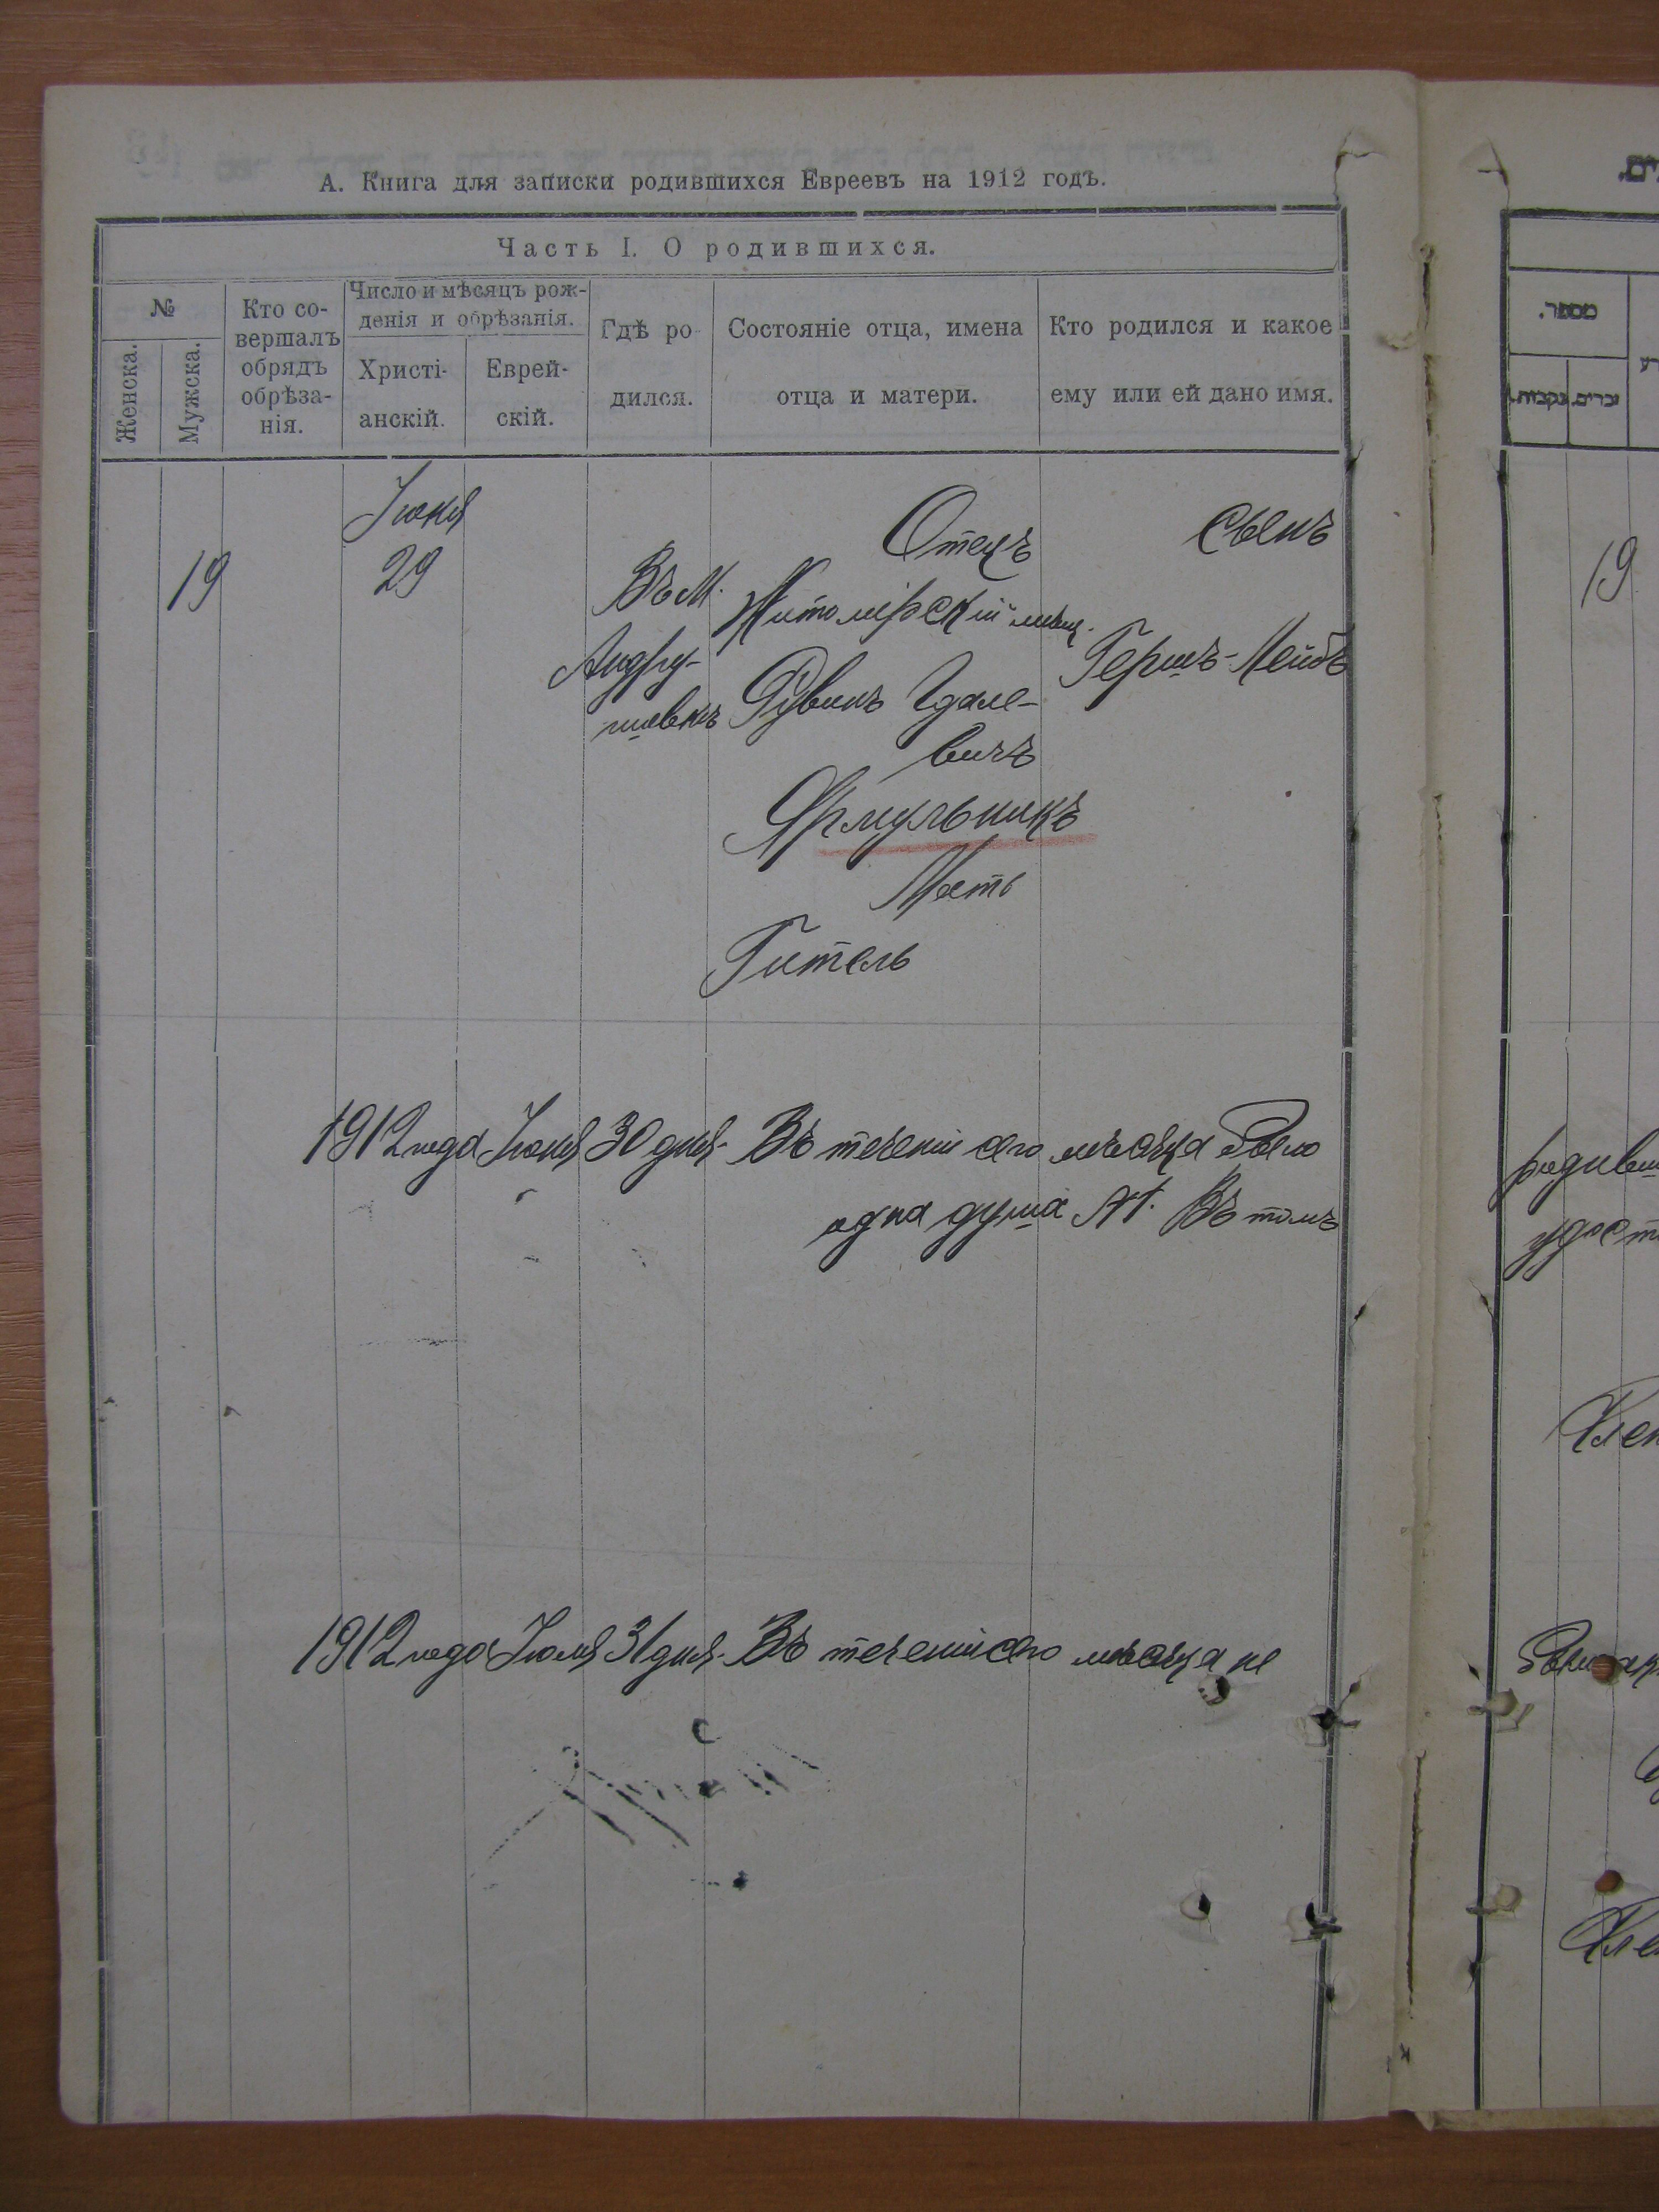 А. Книга для записки родившихся Евреевъ на 1912 годъ.
Часть I. О родившихся.
№
Женска.
Мужска.
Кто со-
вершалъ
обрядъ
обрѣза-
нія.
Число и мѣсяцъ рож-
денія и обрѣзанія.
Христі-
анскій.
Еврей-
скій.
Гдѣ ро-
дился.
Состояніе отца, имена
отца и матери.
Кто родился и какое
ему или ей дано имя.
19
Іюня
29
Въ м.
Андру-
шевкѣ
Отецъ
Житомірскій мѣщ.
Рувинъ Гдале-
вичъ
Ярмульникъ
Мать
Гитель
Сынъ
Гершъ-Лейбъ
1912 года Іюня 30 дня. Въ теченіи сего мѣсяца было
одна душа м. Въ томъ
1912 года Іюля 31 дня. Въ теченіи сего мѣсяца не
מספר.
זכרים.
נקבות.
19
родивш
удост
Член
Чле